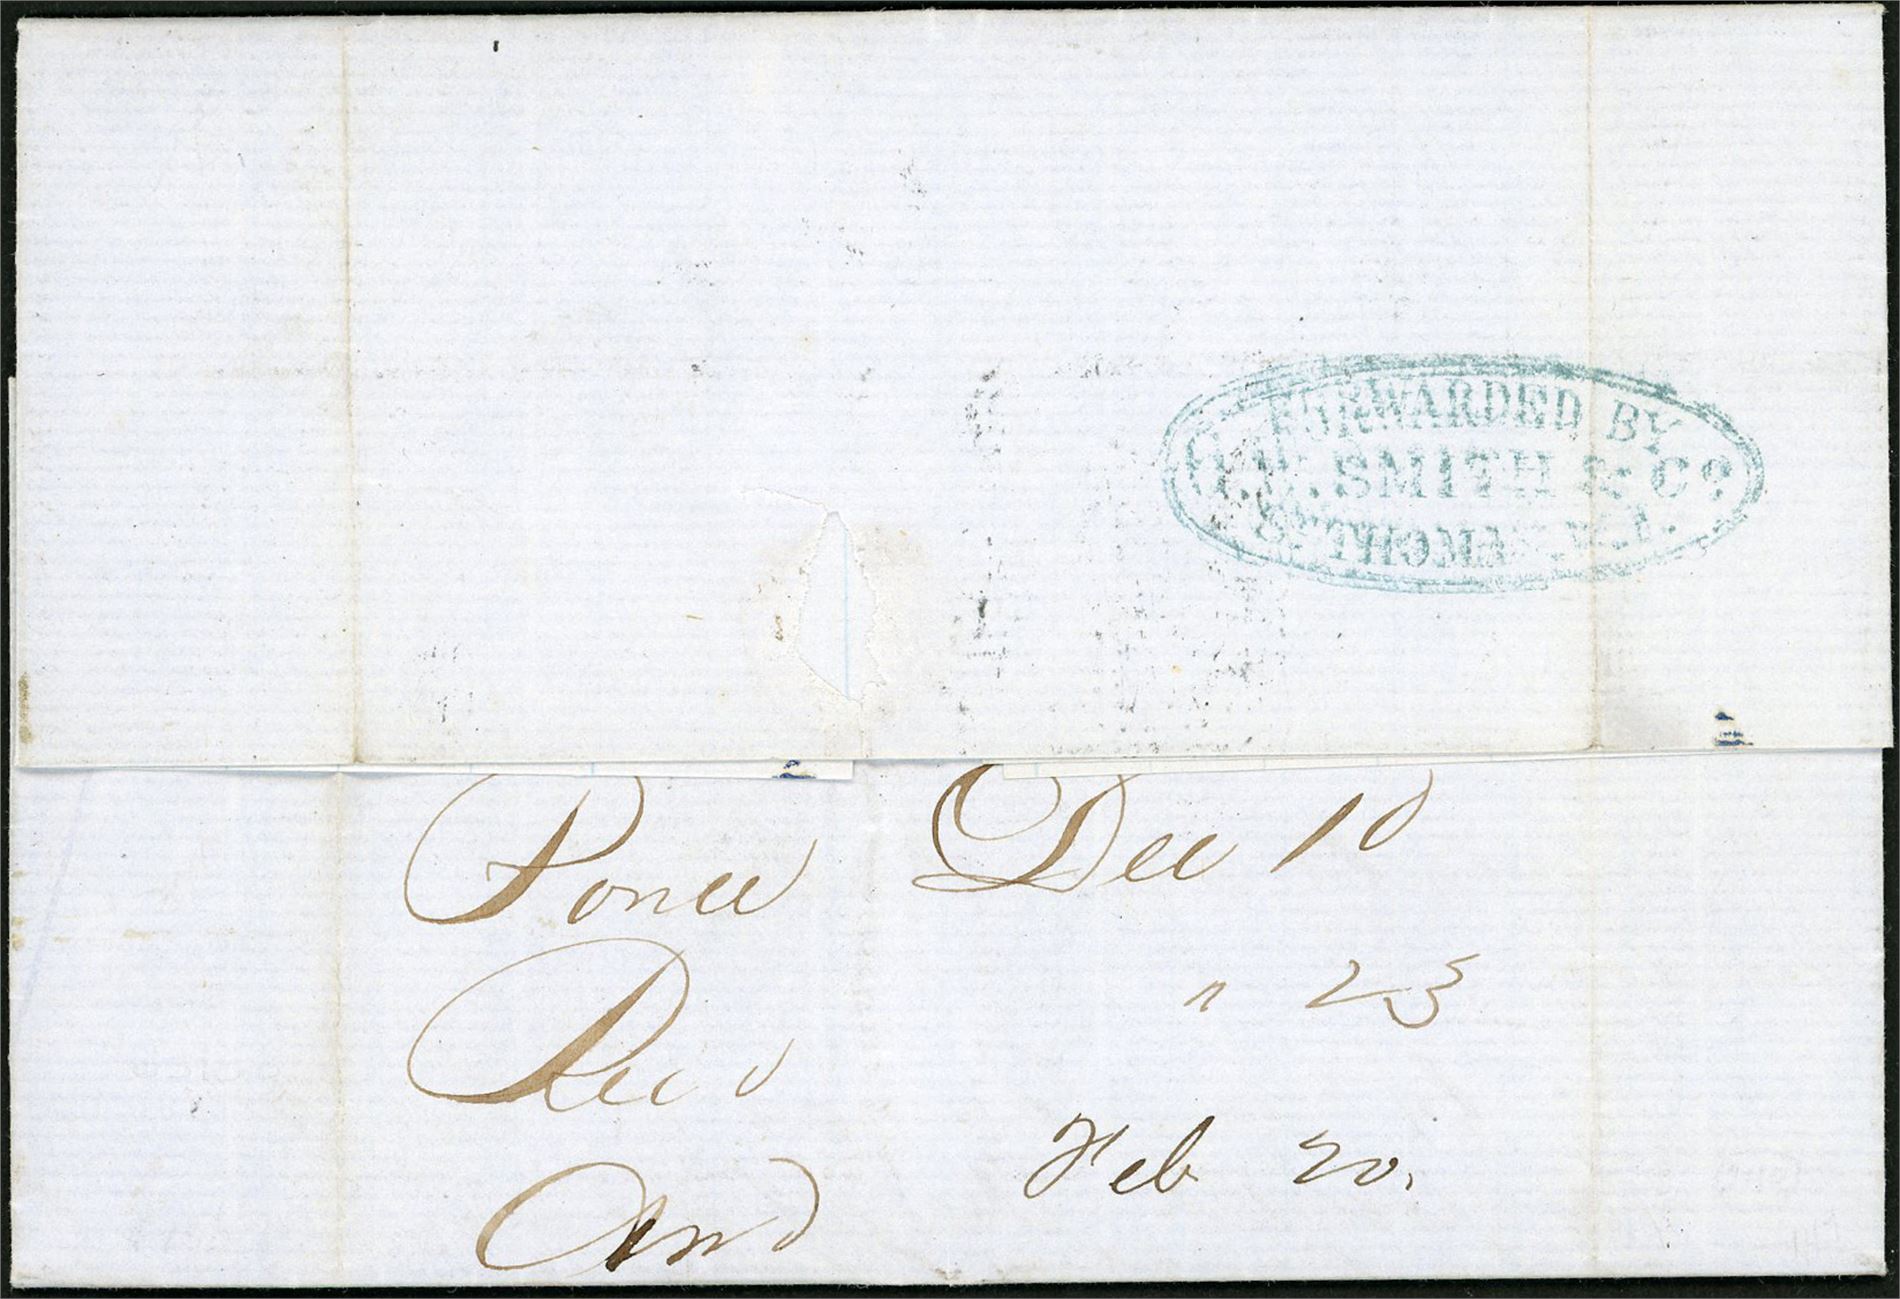 FORWARDED BY
SMITH & Co
ST THOMAS. W. I.
Ponce Dec 10
Recd " 23
Ansd Feb 20.